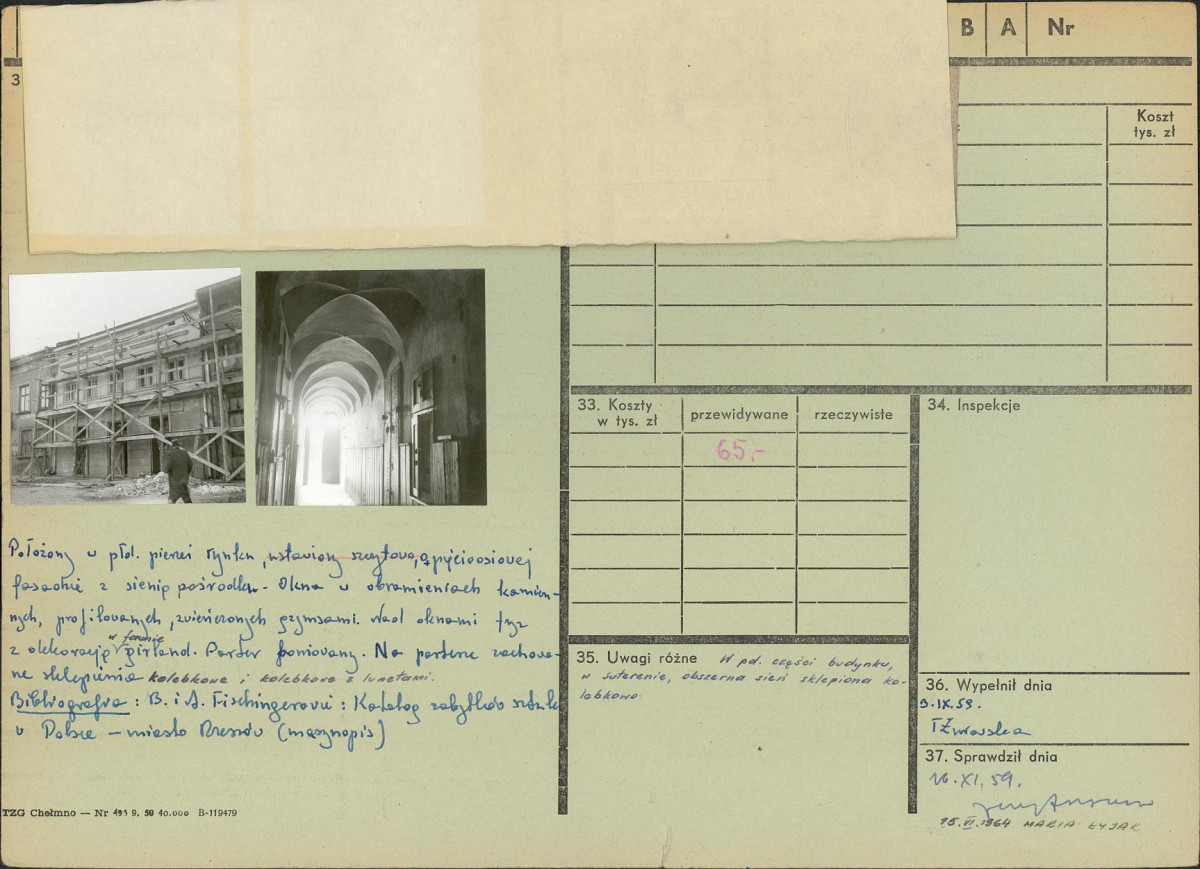 B A Nr
3
Koszt
tys. zł
Położony w płd. pierzei rynku, wstawiony szczytowo, o pięcioosiowej
fasadzie z sienią pośrodku. Okna w obramieniach kamien-
nych, profilowanych, zwieńczonych gzymsami. Nad oknami fryz
z dekoracją w formie girland. Parter boniowany. Na parterze zachowa-
ne sklepienia kolebkowe i kolebkowe z lunetami.
Bibliografia: B. i A. Fischingerowie: Katalog zabytków sztuki
w Polsce – miasto Rzeszów (maszynopis)
TZG Chełmno — Nr 495 9. 59 40.000 B-119479
33. Koszty
w tys. zł
przewidywane
rzeczywiste
65,-
34. Inspekcje
35. Uwagi różne W pd. części budynku,
w suterenie, obszerna sień sklepiona ko-
lebkowo
36. Wypełnił dnia
9.IX.59.
37. Sprawdził dnia
16.XI.59.
15.VI.1964 MARIA ŁYJAK